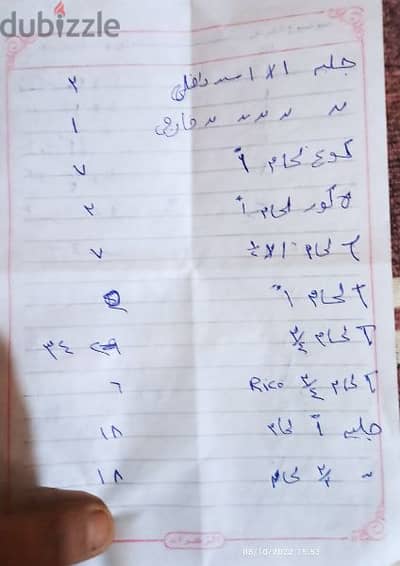 dubizzle
جلبه ١ x ١ سن داخلي ٢
〃 〃 〃 〃 خارجي ١
كوع لحام ١ً ٧
لحام ١ً ٢
T لحام ١ x ٧
T لحام ١ً
T لحام ٣/٤ ٣٤
T لحام ٣/٤ RICO ٦
جلبه ١ً لحام ١٨
〃 ٣/٤ لحام ١٨
08/10/2022 15:53